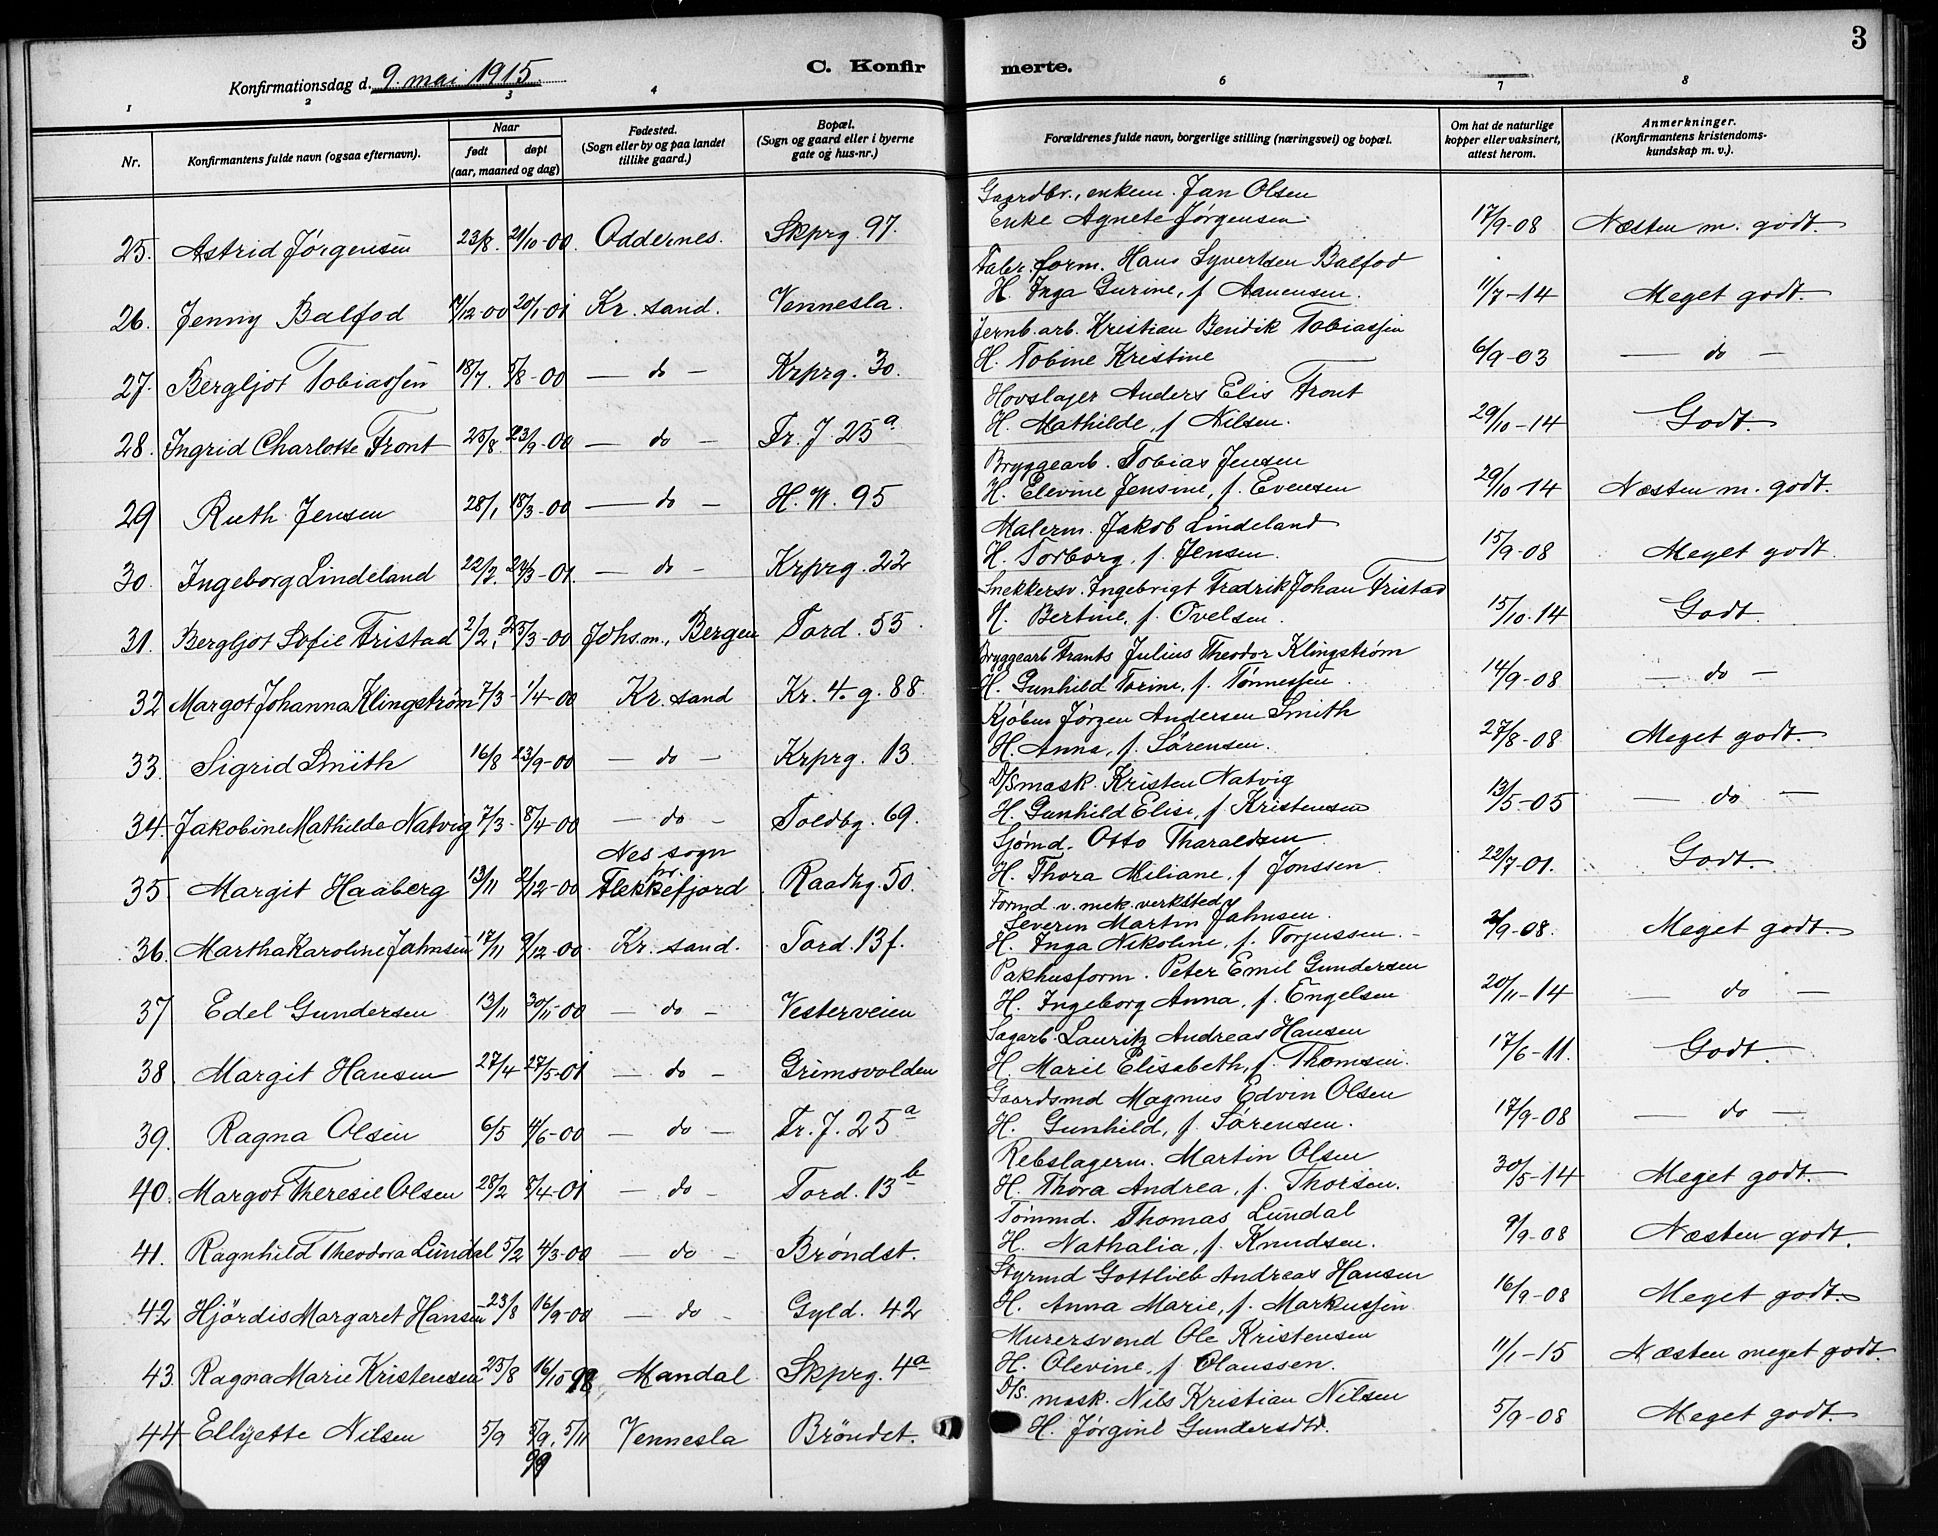 3
Konfirmationsdag d. 9. mai 1915.
C. Konfirmerte.
1 2 3 4 6 7 8
Nr.
Konfirmantens fulde navn (ogsaa efternavn).
Naar
født
døpt
(aar, maaned og dag)
Fødested.
(Sogn eller by og paa landet
tillike gaard.)
Bopæl.
(Sogn og gaard eller i byerne
gate og hus-nr.)
Forældrenes fulde navn, borgerlige stilling (næringsvei) og bopæl.
Om hat de naturlige
kopper eller vaksinert,
attest herom.
Anmerkninger.
(Konfirmantens kristendoms-
kundskap m. v.).
Gaardbr., enkem. Jan Olsen
Enke Agnete Jørgensen.
25. Astrid Jørgensen 23/8. 21/10-00 Oddernes. Skprg. 97. 17/9-08 Næsten m. godt.
Fabr. form. Hans Syvertsen Balfod
H. Inga Gurine, f Aanensen.
26. Jenny Balfod /12-00 20/1-01 Kr. sand. Vennesla. 11/7-14 Meget godt.
Jernb. arb. Kristian Bendik Tobiassen
H. Tobine Kristine
27. Bergljot Tobiassen 18/7. 5/8-00 — do — Krprg. 30. 6/9-03 — do —
Hovslager Anders Elis Front
H. Mathilde, f Nilsen.
28. Ingrid Charlotte Front 25/8. 23/9-00 — do — Fr. J 25a 29/10-14 Godt.
Bryggearb. Tobias Jensen
H. Elevine Jensine, f. Evensen
29 Ruth Jensen 28/1 18/3-00 — do — H. W. 95 29/10-14 Næsten m. godt.
Malerm. Jakob Lindeland
H. Torborg, f. Jensen.
30. Ingeborg Lindeland 22/2. 24/3-01. — do — Krprg. 22 15/9-08 Meget godt
Snekkersv. Ingebrigt Fredrik Johan Fristad
H. Bertine, f. Ovelsen.
31. Bergljot Sofie Fristad 2/2, 25/3-00 Johs.m., Bergen Tord. 55. 15/10-14 Godt.
Bryggearb Frants Julius Theodor Klingstrøm
H. Gunhild Torine, f. Tønnessen.
32 Margot Johanna Klingstrøm 7/3 - 1/4-00 Kr. sand Kr. 4. g. 88. 14/9-08 — do —
Kjøbm Jørgen Andersen Smith
H. Anna, f. Sørensen.
33. Sigrid Smith 16/8 23/9-00 — do — Krprg. 13. 27/8-08 Meget godt.
D/S mask. Kristen Natvig
H. Gunhild Elise, f Kristensen
34 Jakobine Mathilde Natvig 7/3 - 8/4-00 — do — Toldbg. 69. 13/5-05 — do —
Sjømd. Otto Tharaldsen
H. Thora Miliane, f Jonssen.
35. Margit Haaberg 13/11 2/12-00 Nes sogn pr. Flekkefjord Raadhg. 50. 22/7-01. Godt.
Formd. v. mek. verksted
Severin Martin Jahnsen.
H. Inga Nikoline, f. Torjussen.
36. Martha Karoline Jahnsen 17/11 9/12-00 Kr. sand. Tord. 13f. /9-08. Meget godt.
Pakhusform. Peter Emil Gundersen
H. Ingeborg Anna, f. Engelsen
37 Edel Gundersen 13/11 30/11-00 — do — Vesterveien 20/11-14 — do —
Sagarb. Lauritz Andreas Hansen
H. Marie Elisabeth, f. Thomsen.
38. Margit Hansen 27/4 27/5-01 — do — Grimsvolden 17/6-11. Godt.
Gaardsmd Magnus Edvin Olsen
H. Gunhild, f. Sørensen.
39. Ragna Olsen 6/5 4/6-00 — do — Fr. J. 25a 17/9-08 — do —
Rebslagerm. Martin Olsen
H. Thora Andrea, f. Thorsen.
40. Margot Theresie Olsen 28/2 8/4-01 — do — Tord. 13b 30/5-14 Meget godt.
Tømmd. Thomas Lundal
H. Nathalia, f. Knudsen.
41. Ragnhild Theodora Lundal 5/2 4/3-00 — do — Brøndst. 9/9-08 Næsten godt.
Styrmd Gottlieb Andreas Hansen
H. Anna Marie, f. Markussen
42 Hjørdis Margaret Hansen 23/8 16/9-00 — do — Gyld. 42 16/9-08 Meget godt.
Murersvend Ole Kristensen
H. Olevine, f Olaussen.
43. Ragna Marie Kristensen 25/8 16/10 98 Mandal Skprg. 4a 11/1-15 Næsten meget godt.
D/S. mask. Nils Kristian Nilsen
H. Jørgine Gundersdtr.
44 Ellyette Nilsen 5/9 5/9. 5/11 99 Vennesla Brøndst. 5/9-08 Meget godt.